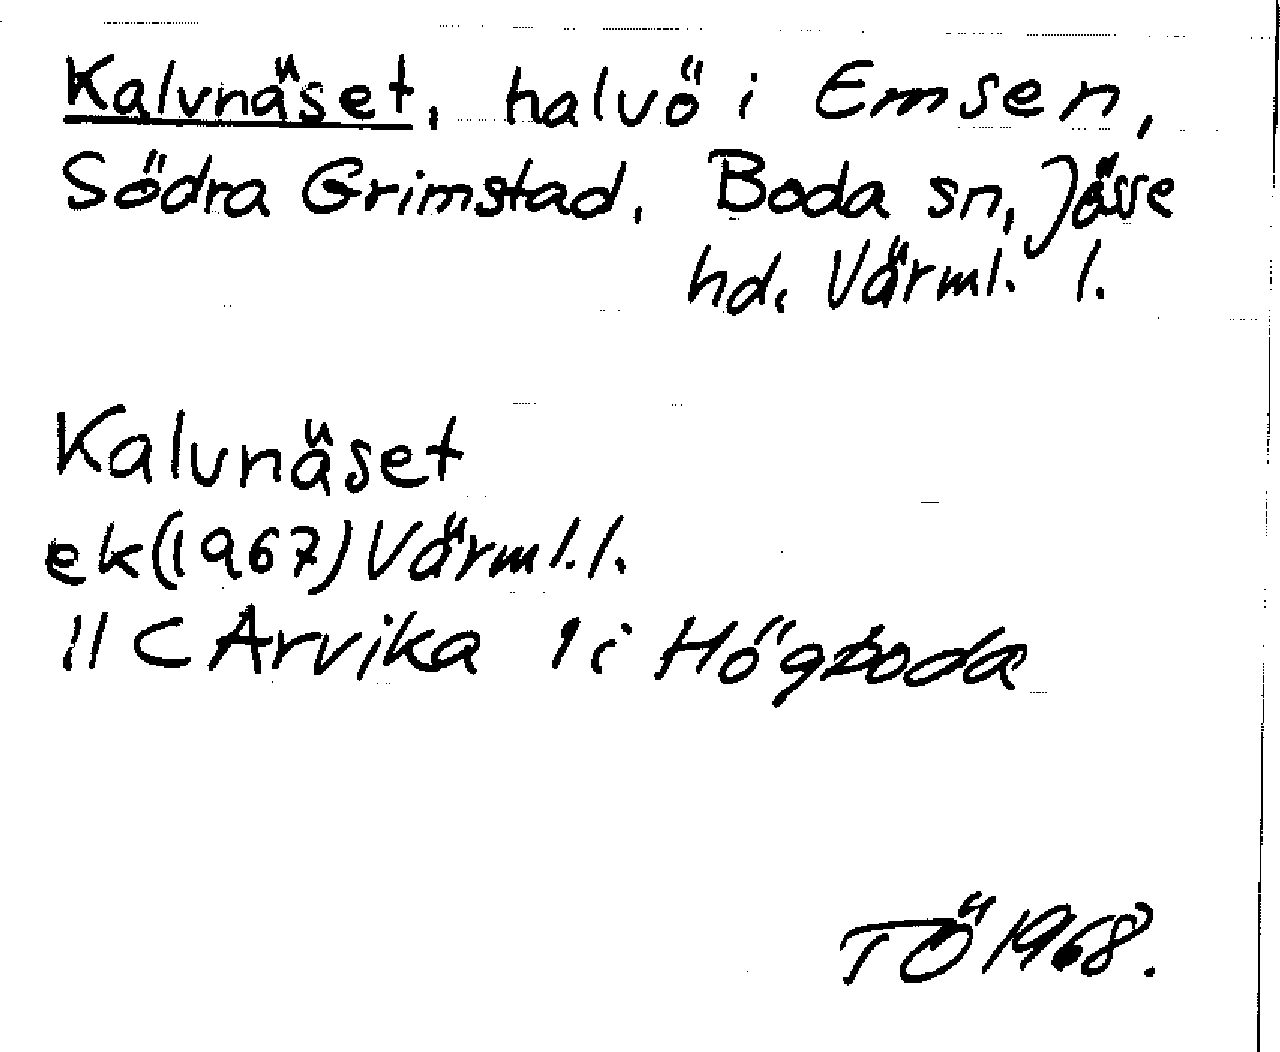 Kalvnäset, halvö i Emsen,
Södra Grimstad, Boda sn, Jösse
hd. Värml. l.
Kalvnäset
ek (1967) Värml. l.
11 C Arvika 1 i Högboda
TÖ 1968.